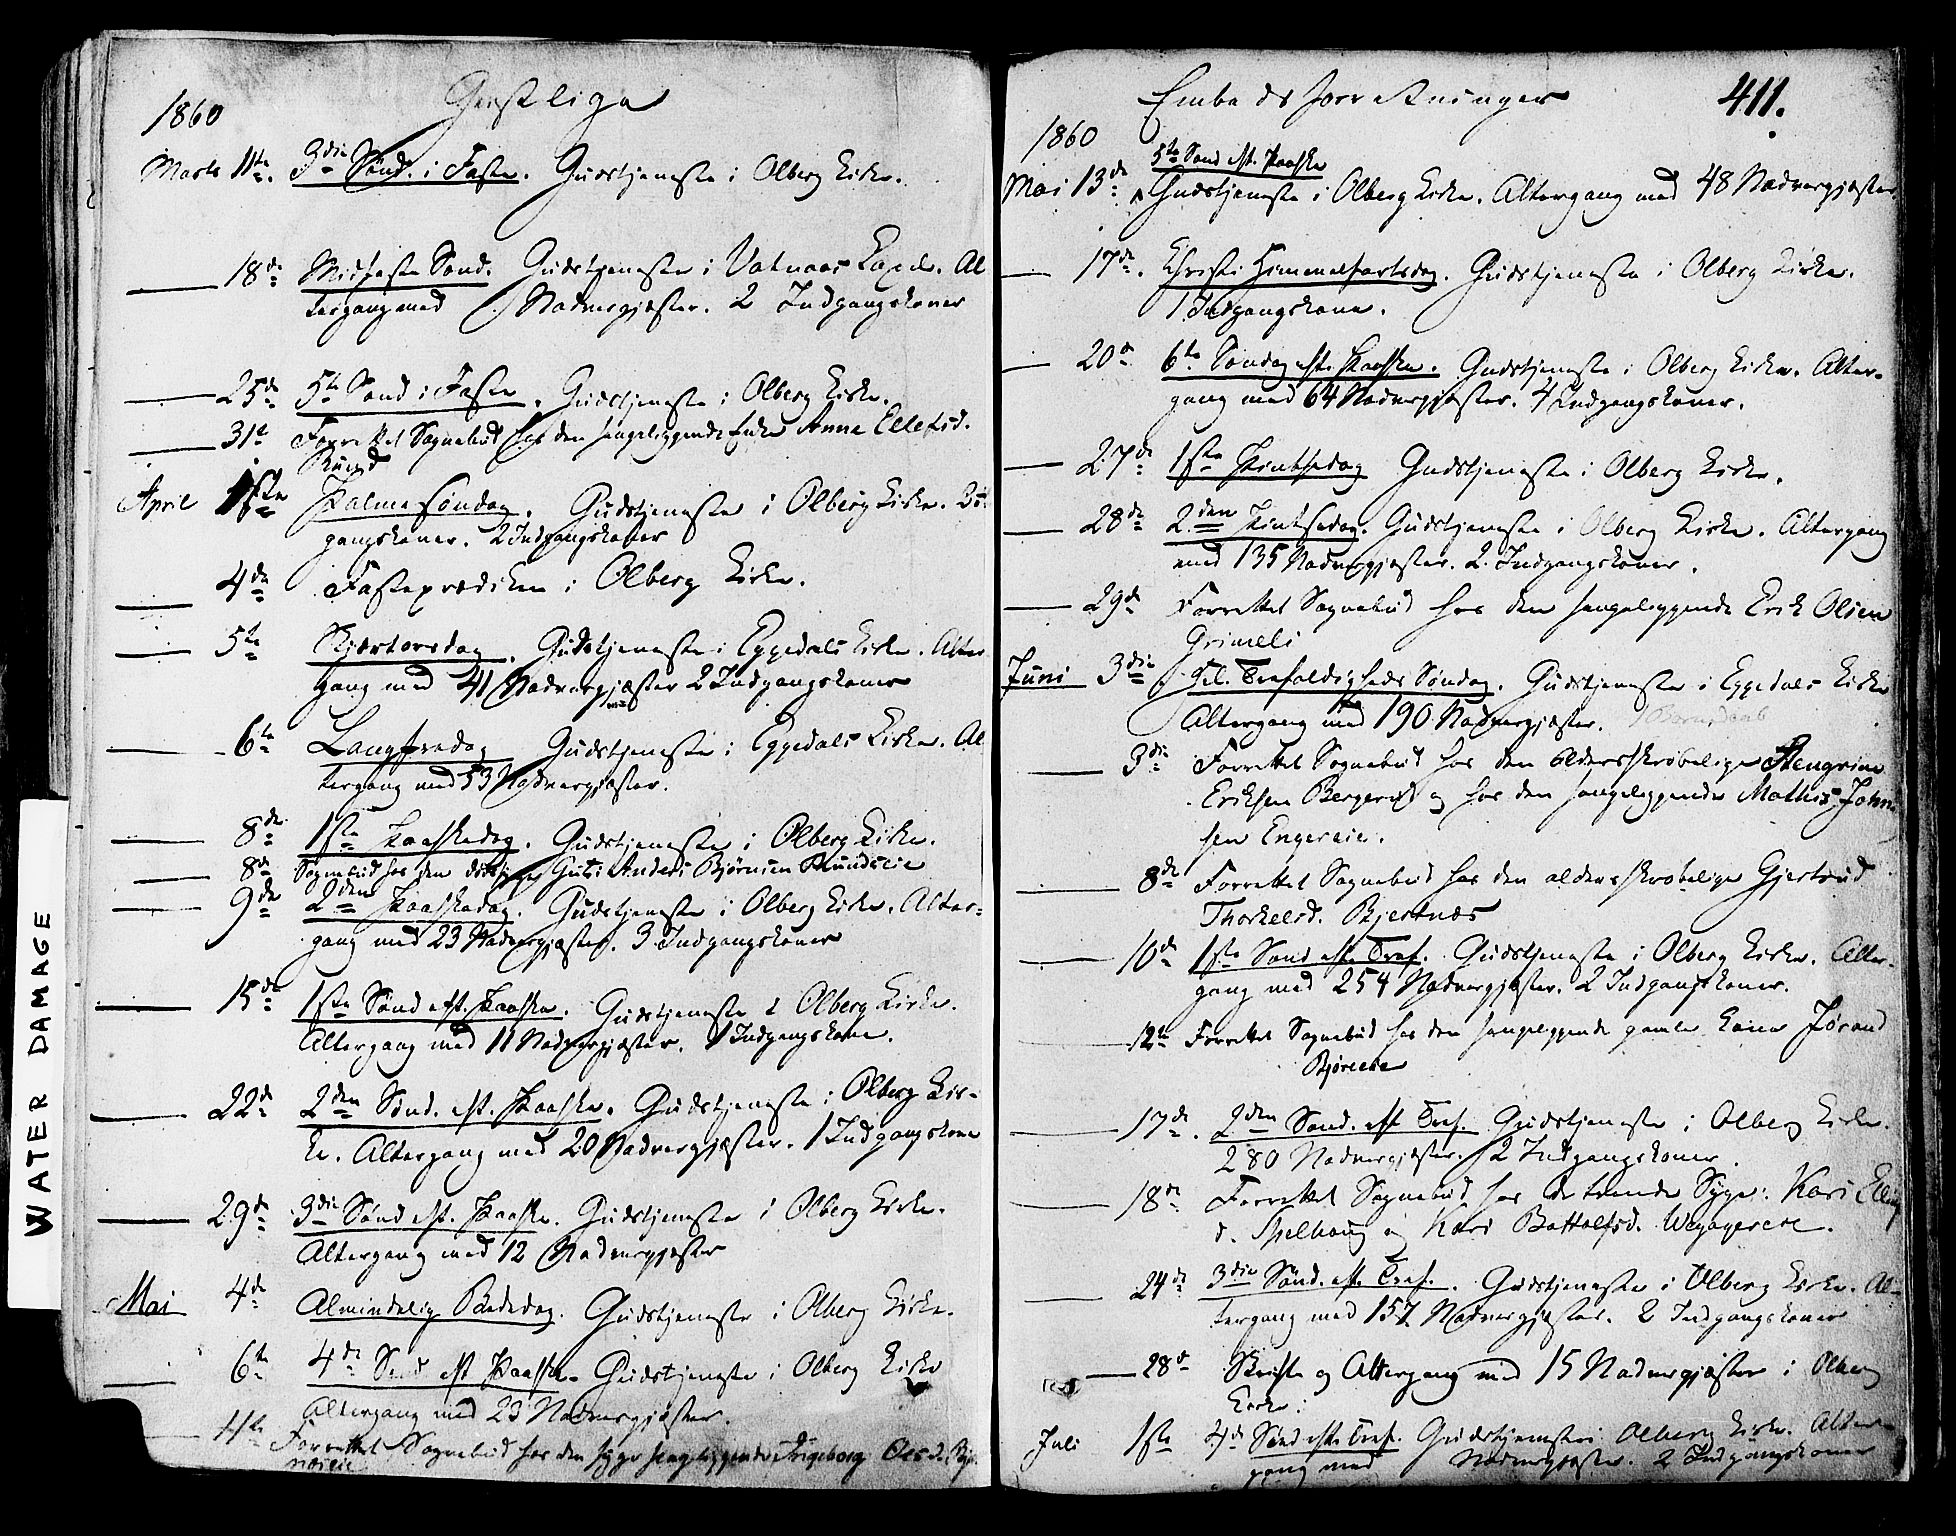 1860 Geistlige
Marts 11te. 3die Sønd. i Faste. Gudstjeneste i Olberg Kirke.
18de Midfaste Sønd. Gudstjeneste i Vatnaas Capel. Al
tergang med Nadvergjæster. 2 Indgangskoner
25de 5te Sønd i Faste. Gudstjeneste i Olberg Kirke.
31te Forrettet Sognebud hos den sengeliggende Enke Anne Ellefsd.
Ruud
April 1ste Palmesøndag. Gudstjeneste i Olberg Kirke.
gangskoner. 2 Indgangskoner
4de Fasteprædiken i Olberg Kirke.
5te Skjærtorsdag. Gudstjeneste i Eggedals Kirke. Alter
gang med 41 Nadvergjæster 2 Indgangskoner
6te Langfredag Gudstjeneste i Eggedals Kirke. Al
tergang med 53 Nadvergjæster.
8de 1ste Paaskedag. Gudstjeneste i Olberg Kirke.
8de Sognebud hos den Anders Bjørnsen Ruudseie
9de 2den Paaskedag. Gudstjeneste i Olberg Kirke. Alter=
gang med 23 Nadvergjæster. 3 Indgangskoner
15de 1ste Sønd eft. Paaske. Gudstjeneste i Olberg Kirke.
Altergang med 11 Nadvergjæster. 1 Indgangskone.
22de 2den Sønd. eft. Paaske. Gudstjeneste i Olberg Kir-
ke. Altergang med 20 Nadvergjæster. 1 Indgangskone
29de 3die Sønd eft. Paaske. Gudstjeneste i Olberg Kirke.
Altergang med 12 Nadvergjæster
Mai 4de Almindelig Bededag. Gudstjeneste i Olberg Kirke.
6te 4de Sønd eft Paaske. Gudstjeneste i Olberg Kirke
Altergang med 23 Nadvergjæster.
Forrettet Sognebud hos den syge sengeliggende Ingeborg Olsd.
WATER DAMAGE
Embedsforretninger 411.
1860
5te Sønd eft. Paaske
Mai 13de Gudstjeneste i Olberg Kirke. Altergang med 48 Nadvergjæster.
17de. Christi Himmelfartsdag. Gudstjeneste i Olberg Kirke.
1 Indgangskone.
20de 6te Søndag eft. Paaske. Gudstjeneste i Olberg Kirke. Alter-
gang med 64 Nadvergjæster. 4 Indgangskoner.
27de 1ste Pintsedag Gudstjeneste i Olberg Kirke.
28de 2den Pintsedag. Gudstjeneste i Olberg Kirke. Altergang
med 135 Nadvergjæster. 2 Indgangskoner.
29de Forrettet Sognebud hos den sengeliggende Erik Olsen
Grimeli
Juni 3die Hel. Trefoldigheds Søndag. Gudstjeneste i Eggedals Kirke
Altergang med 190 Nadvergjæster. 1 Barnedaab
3die Forrettet Sognebud hos den Aldersskrøbelige Stengrim
Eriksen Bergerud og hos den sengeliggende Mathis John
sen Engereie.
8de Forrettet Sognebud hos den aldersskrøbelige Gjertrud
Thorkelsd. Bjertnæs
10de 1ste Sønd eft. Tref. Gudstjeneste i Olberg Kirke. Alter-
gang med 254 Nadvergjæster. 2 Indgangskoner.
12te Forrettet Sognebud hos den sengeliggende gamle Kone Jørand
Bjøreeie
17de. 2den Sønd. eft Tref. Gudstjeneste i Olberg Kirke.
280 Nadvergjæster. 2 Indgangskoner.
18de Forrettet Sognebud hos de tvende Syge: Kari Elling
d. Spelhaug og Kari Bottolfsd.
24de 3die Sønd. eft. Tref. Gudstjeneste i Olberg Kirke. Al-
tergang med 157 Nadvergjæster. 2 Indgangskoner
28de Skrifte og Altergang med 15 Nadvergjæster i Olberg
Kirke.
Juli 1ste 4de Sønd eft. Tref. Gudstjeneste i Olberg Kirke. Alter
gang med Nadvergjæster. 2 Indgangskoner